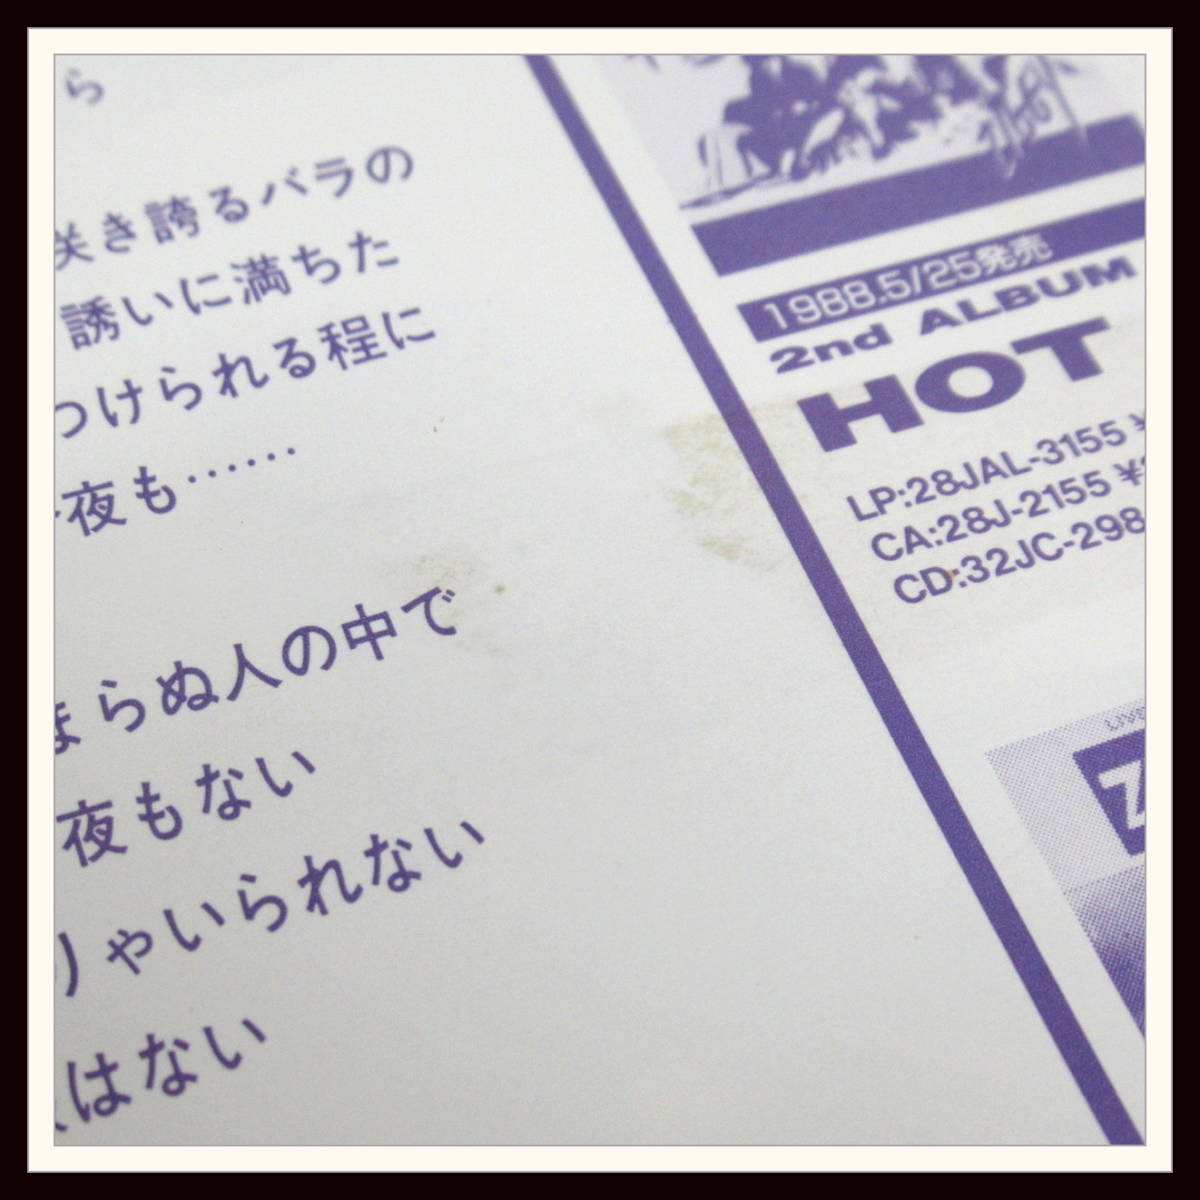 ら
咲き誇るバラの
誘いに満ちた
つけられる程に
夜も……
まらぬ人の中で
夜もない
りゃいられない
はない
1988.5/25発売
2nd ALBUM
HOT
LP:28JAL-3155 ¥
CA:28J-2155 ¥
CD:32JC-298
LIVE
Z